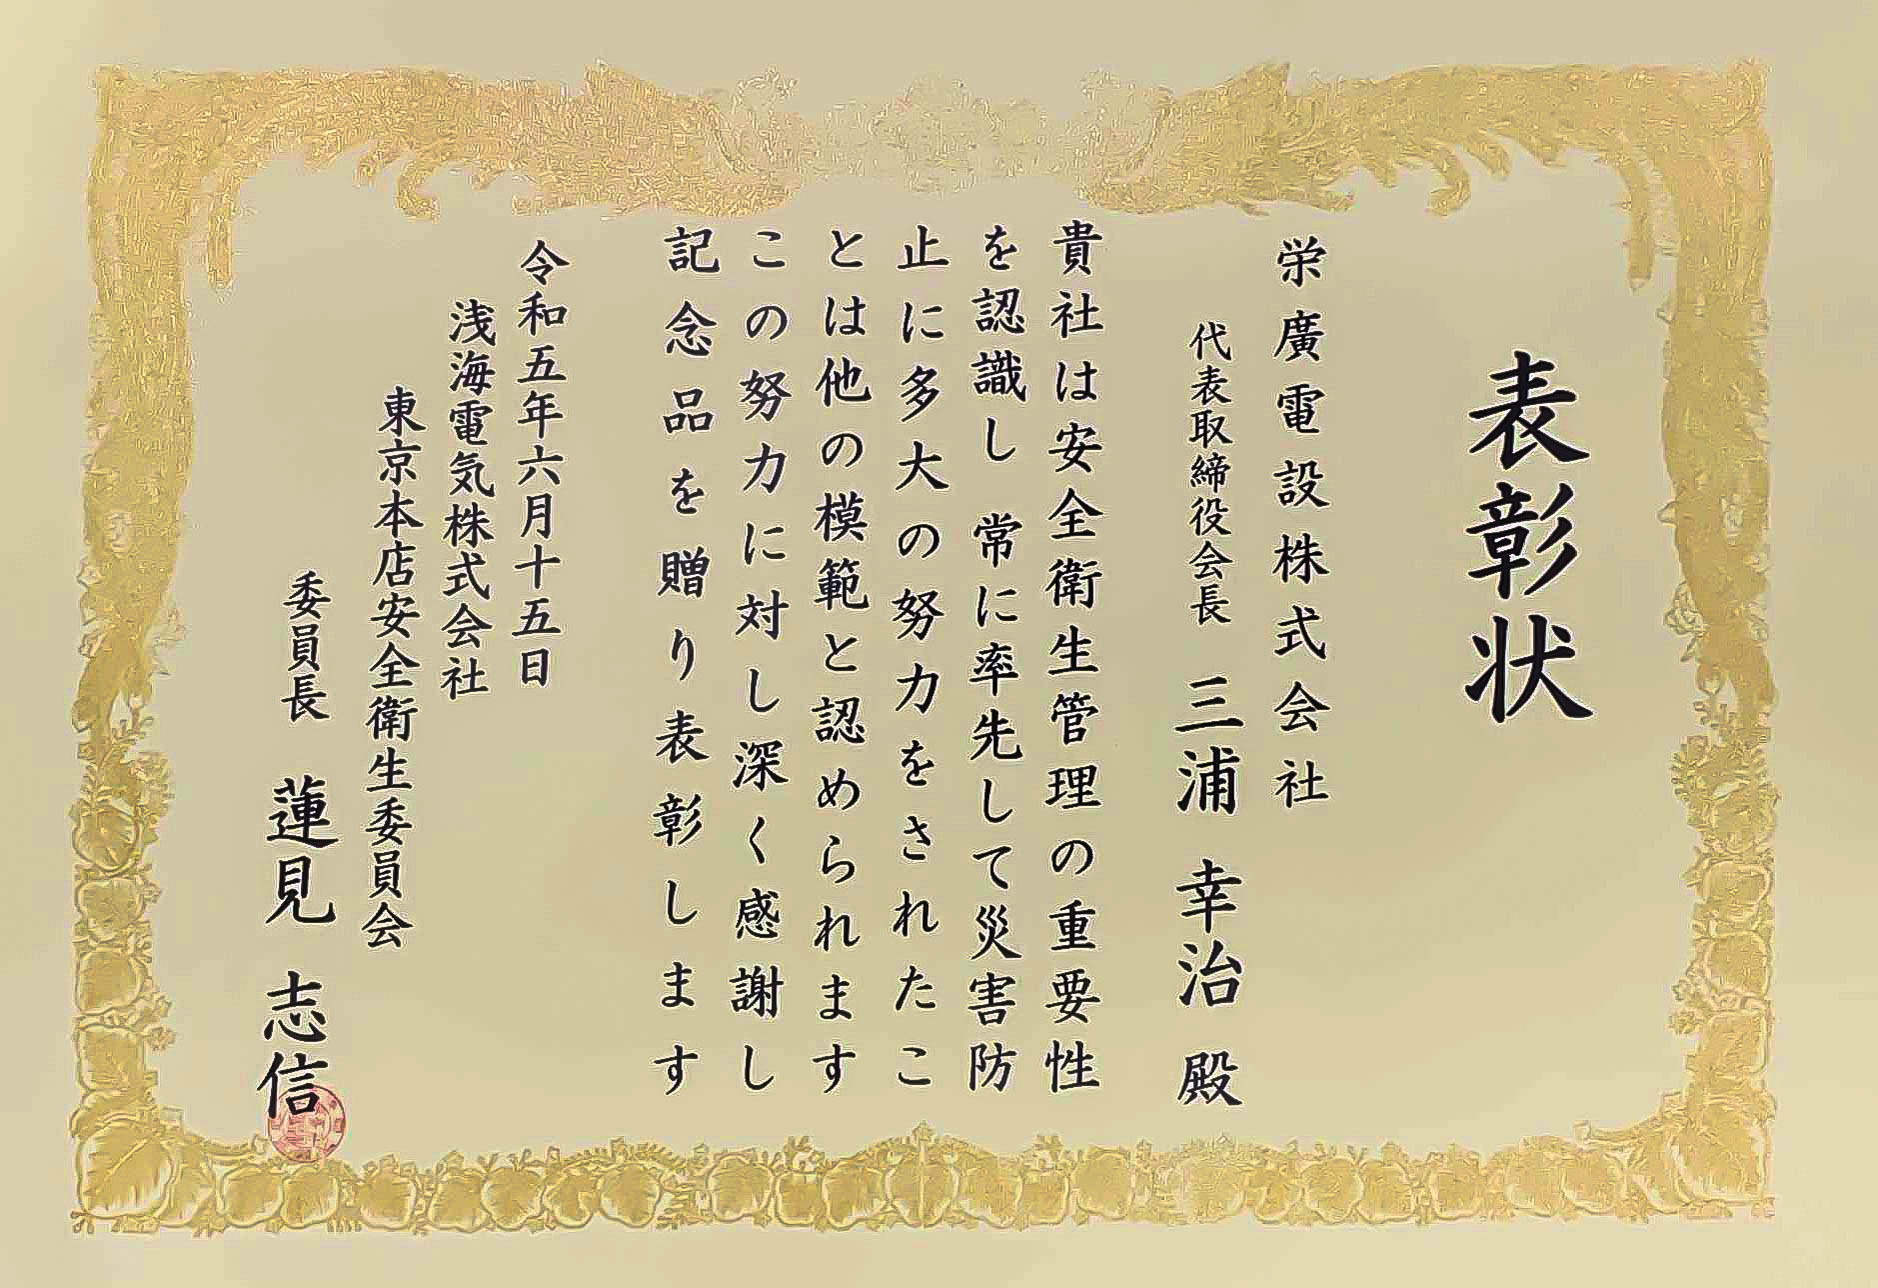 表彰状
栄廣電設株式会社
代表取締役会長 三浦 幸治 殿
貴社は安全衛生管理の重要性
を認識し 常に率先して災害防
止に多大の努力をされたこ
とは他の模範と認められます
この努力に対し深く感謝し
記念品を贈り表彰します
令和五年六月十五日
浅海電気株式会社
東京本店安全衛生委員会
委員長 蓮見 志信